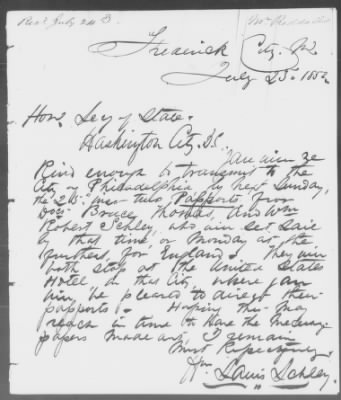 Rec'd July 24
Frederick City, Md.
July 23d 1852
Hon. Secy of State.
Washington City. D.C.
You will be
Kind enough to transmit to the
City of Philadelphia by next Sunday,
the 25 two Passports for
Bruce Thomas, and Wm
Robert Schley, who will set sail
by that time, or Monday at the
furthest, for England. They will
both stop at the United States
Hotel in that City, where you
will be pleased to direct their
passports. Hoping this may
reach in time to have the necessary
papers made out, I remain
Most Respectfully,
Wm. Louis Schley.